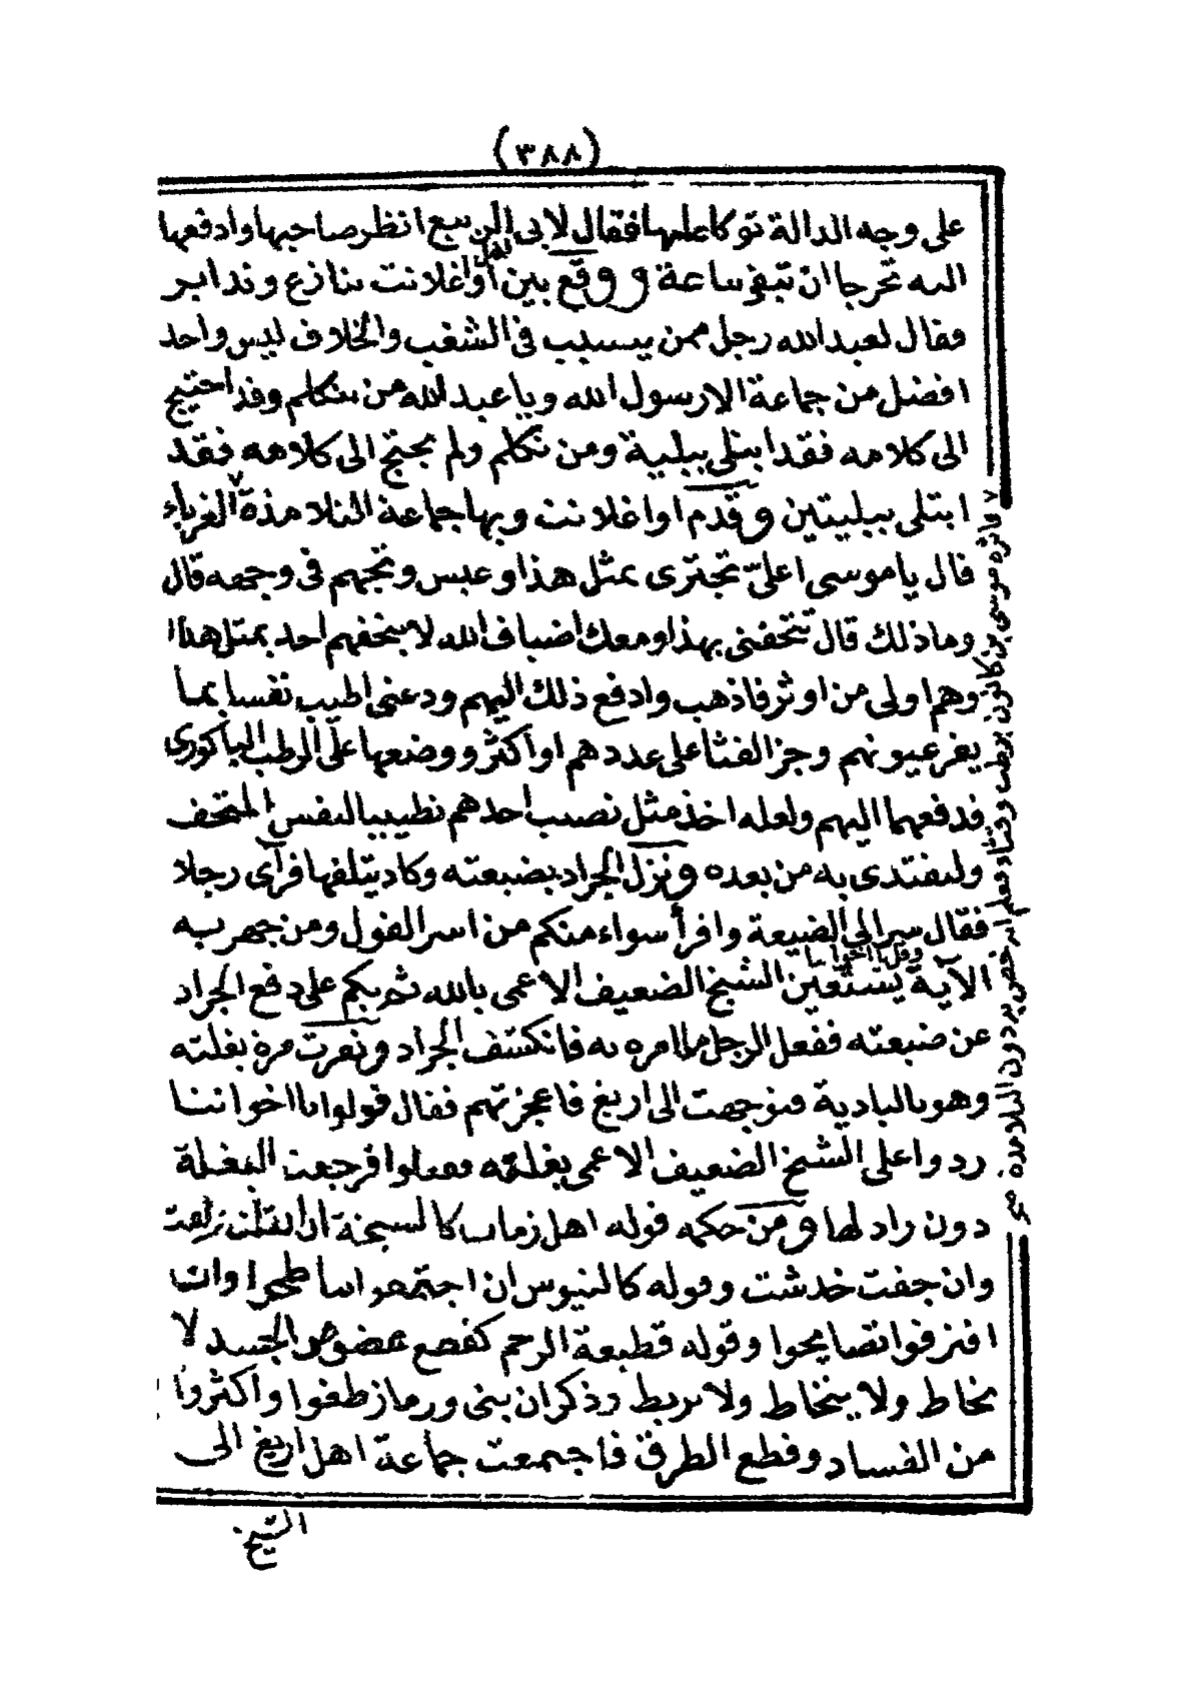 (٣٨٨)
على وجه الدالة توكا عليها فقال لابى الربيع انظر صاحبها وادفعها
اليه تحرجا ان تبقى ساعة و وقع بين اهل اوغلانت تنازع وتدابر
وقال لعبد الله رجل ممن يتسبب فى الشغب والخلاف ليس واحد
افضل من جماعة الا رسول الله ويا عبد الله من تكلم وقد احتيج
الى كلامه فقد ابتلى ببلية ومن تكلم ولم يحتج الى كلامه فقد
ابتلى ببليتين وقدم اواغلانت وبها جماعة التلامذة الغرباء
قال ياموسى اعلىّ تجترى بمثل هذا وعبس وتجهم فى وجهه قال
وما ذلك قال تتحفنى بهذا ومعك اضياف الله لا يتحفهم احد بمثل هذا
وهم اولى من اوثر فاذهب وادفع ذلك اليهم ودعنى اطيب نفسا بما
يقر عيونهم وجز القثا على عددهم او اكثر ووضعها على الرطب الباكورى
فدفعهما اليهم ولعله اخذ مثل نصيب احدهم تطييبا لنفس المتحف
وليقتدى به من بعده ونزل الجراد بضيعته وكاد يتلفها فرأى رجلا
فقال سر الى الضيعة واقرأ سواء منكم من اسر القول ومن جهر به
الآية وقل يا اخواننا يستعين الشيخ الضعيف الاعمى بالله ثم بكم على دفع الجراد
عن ضيعته ففعل الرجل ما امره به فانكشف الجراد ونفرت مرة بغلته
وهو بالبادية فتوجهت الى اريغ فاعجزتهم فقال قولوا يا اخواننا
ردوا على الشيخ الضعيف الاعمى بغلته فقالوا فرجعت البغلة
دون راد لها ومن حكمه قوله اهل زماننا كالسبخة ان ابتلت زلقت
وان جفت خدشت وقوله كالتيوس ان اجتمعوا تناطحوا وان
افترقوا تصايحوا وقوله قطيعة الرحم كقطع عضو من الجسد لا
يخاط ولا ينخاط ولا يربط وذكر ان بنى ورماز طغوا واكثروا
من الفساد وقطع الطرق فاجتمعت جماعة اهل اريغ الى
الشيخ
٧ فاثره موسى بن كانون برطب وقثاء فعلم انه خص به دون التلامذة صح